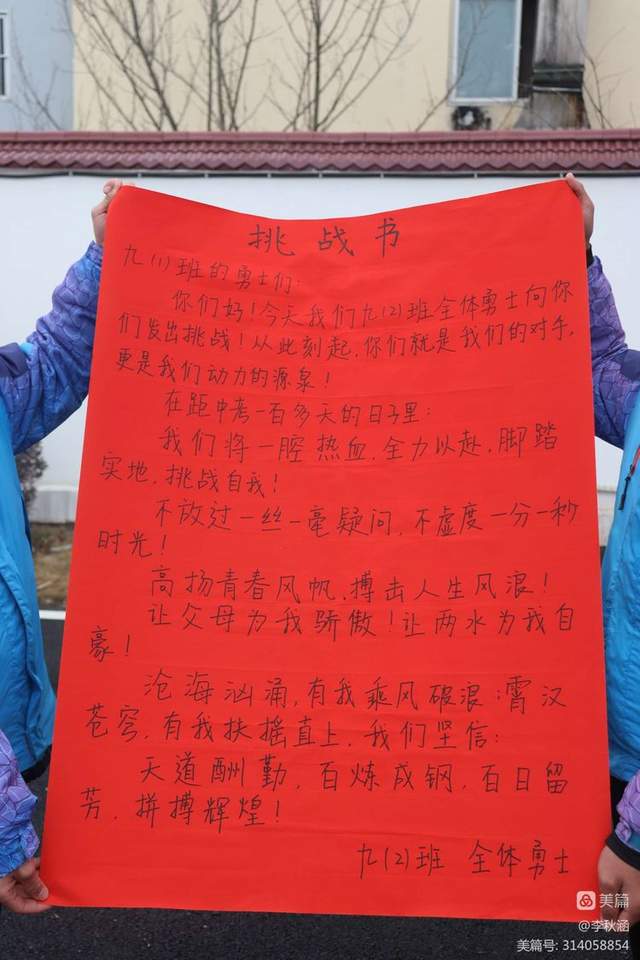 挑战书
九(1)班的勇士们:
你们好!今天我们九(2)班全体勇士向你
们发出挑战!从此刻起,你们就是我们的对手,
更是我们动力的源泉!
在距中考一百多天的日子里:
我们将一腔热血,全力以赴,脚踏
实地,挑战自我!
不放过一丝一毫疑问,不虚度一分一秒
时光!
高扬青春风帆,搏击人生风浪!
让父母为我骄傲!让两水为我自
豪!
沧海汹涌,有我乘风破浪;霄汉
苍穹,有我扶摇直上,我们坚信:
天道酬勤,百炼成钢,百日留
芳,拼搏辉煌!
九(2)班 全体勇士
美篇
@李秋涵
美篇号: 314058854